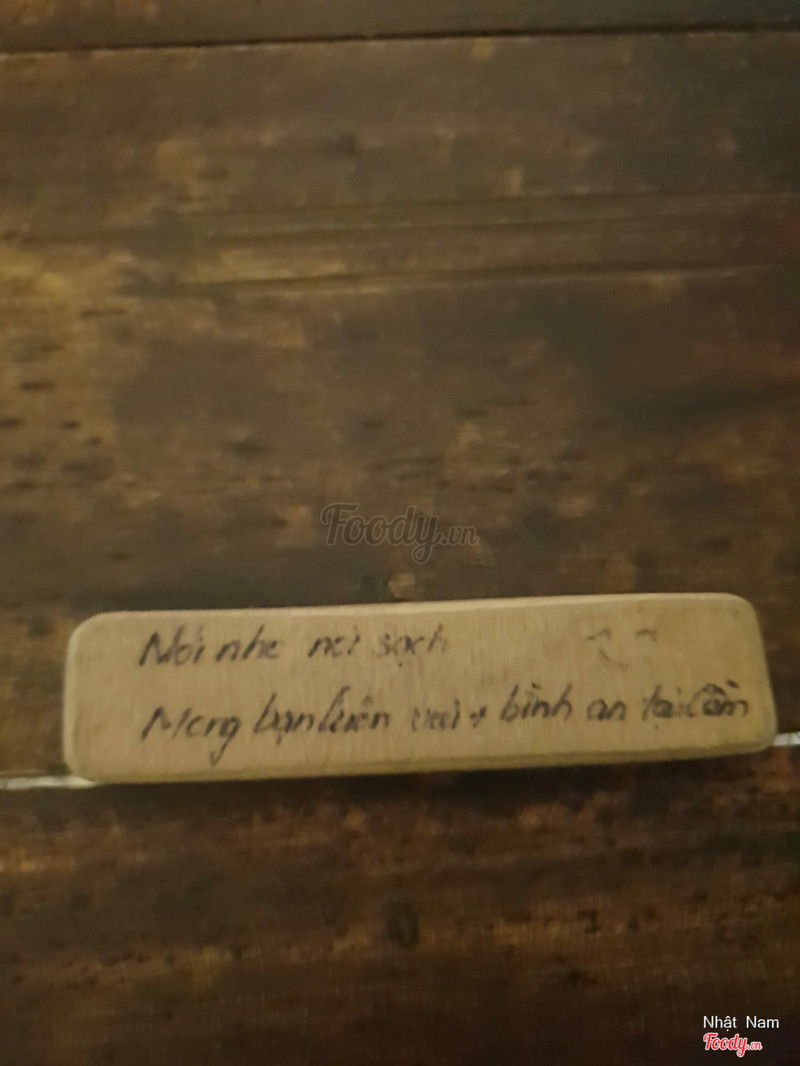 Foody.vn
Nói nhẹ nói sạch
Mong bạn luôn vui + bình an tại Cầm
Nhật Nam
Foody.vn